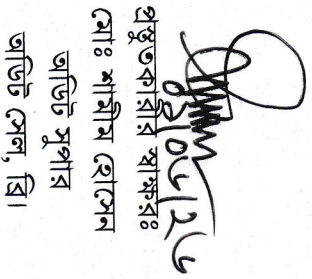 প্রস্তুতকারীর স্বাক্ষরঃ
মোঃ শামীম হোসেন
অডিট সুপার
অডিট সেল, ব্রি।